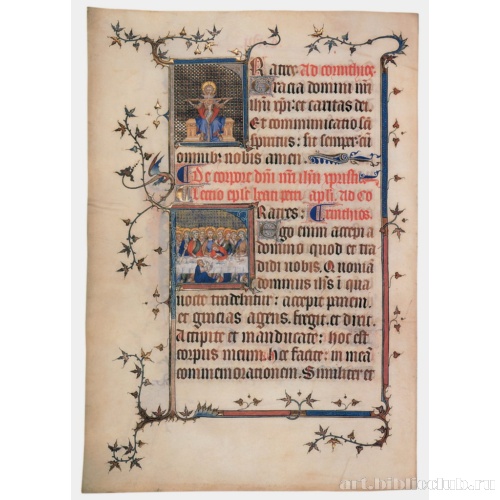 Ratres. Ad corinthios.
Gracia domini nr̄i
ih̄u xp̄i: et caritas dei.
Et communicatio sc̄i
spiritus: sit semper cum
omnibus nobis amen.
De corpore dn̄i nr̄i ih̄u
Lectio ep̄le beati apl̄i ad co
Ratres: rinthios.
Ego enim accepi a
domino quod et tra
didi nobis. Quoniā
dominus ih̄s ī qua
nocte tradebatur: accepit panem.
et gracias agens. fregit. et dixit.
Accipite et manducate: hoc est
corpus meum. hoc facite: in meā
commemorationem. Similiter et
art.biblioclub.ru